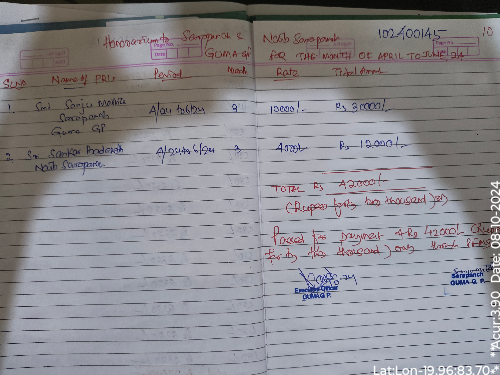 Honorarium to Sarapanch & Naib Sarapanch
102400145
10
GUMA GP FOR THE MONTH OF APRIL TO JUNE-24
Sl.No Name of PRIs Period Month Rate Total Amount
1 Smt Sanju Mallick A/24 to 6/24 10000/- Rs 30000/-
Sarapanch
Guma GP
2 Sri Sankar A/24 to 6/24 3 4000/- Rs 12000/-
Naib Sarapanch
TOTAL Rs 42000/-
(Rupees forty two thousand) only
Passed for payment of Rs 42000/-
forty two thousand) only
Executive Officer
GUMA G.P.
Sarapanch
GUMA G. P.
**Acur:3.90 Date: 08-10-2024
Lat:Lon-19.96:83.70*